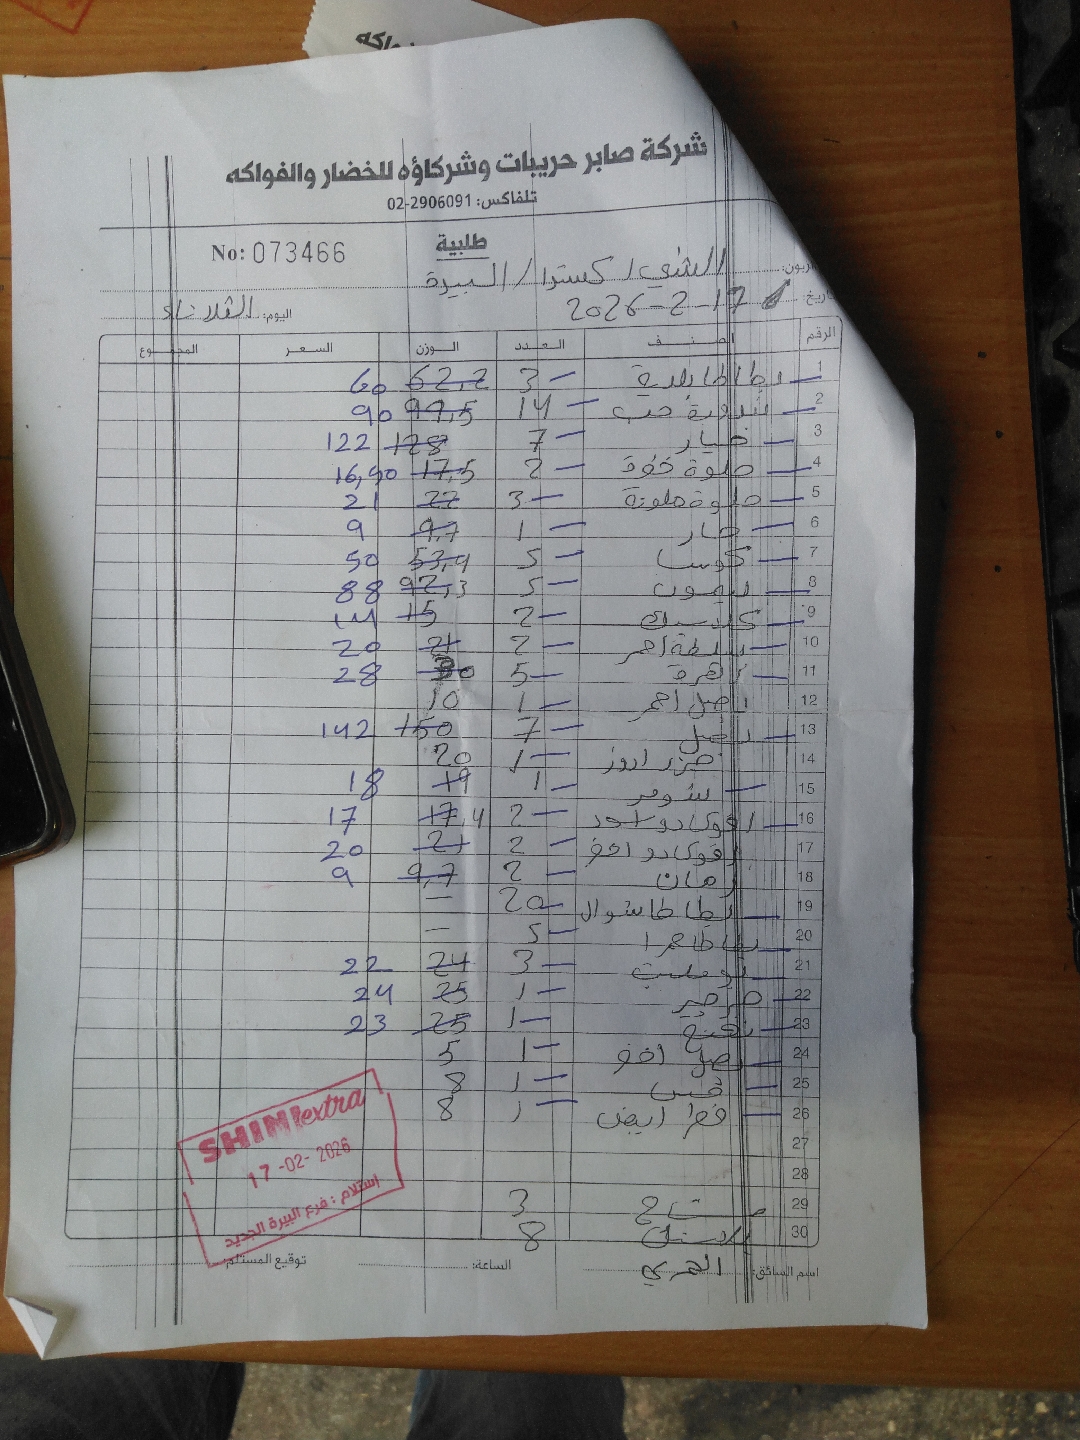 شركة صابر حريبات وشركاؤه للخضار والفواكه
تلفاكس: 02-2906091
No: 073466
طلبية
الشني / كسترا / البيرة
2026-2-17
اليوم: الثلاثاء
الرقم الصنف العدد الوزن السعر المجموع
1 بطاطا بلدية 3 62,2 60
2 بندورة حب 14 97,5 90
3 خيار 7 128 122
4 حلوة 2 17,5 16,90
5 حلوة ملونة 3 22 21
6 حار 1 9,7 9
7 كوسا 5 53,9 50
8 ليمون 5 92,3 88
9 2 15 14
10 احمر 2 21 20
11 زهرة 5 30 28
12 بصل احمر 1 10
13 بصل 7 150 142
14 جزر 1 20
15 شومر 1 19 18
16 افوكادو 2 17,4 17
17 افوكادو اخو 2 21 20
18 رمان 2 9,7 9
19 بطاطا شوال 20 —
20 بطاطا حمرا 5 —
21 3 24 22
22 جرجير 1 25 24
23 نعنع 1 25 23
24 بصل اخو 1 5
25 خس 1 8
26 فطر ابيض 1 8
27
28
29 3
30 8
اسم السائق:
الساعة:
توقيع المستلم:
SHINI extra
17-02-2026
إستلام: فرع البيرة الجديد